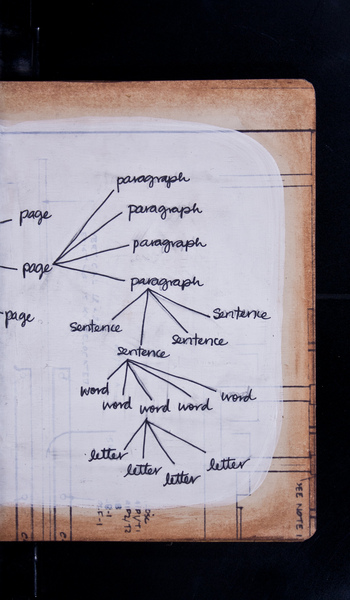 paragraph
paragraph
page
paragraph
page
paragraph
page
sentence
sentence
sentence
sentence
word
word
word
word
word
letter
letter
letter
letter
SEE NOTE 1